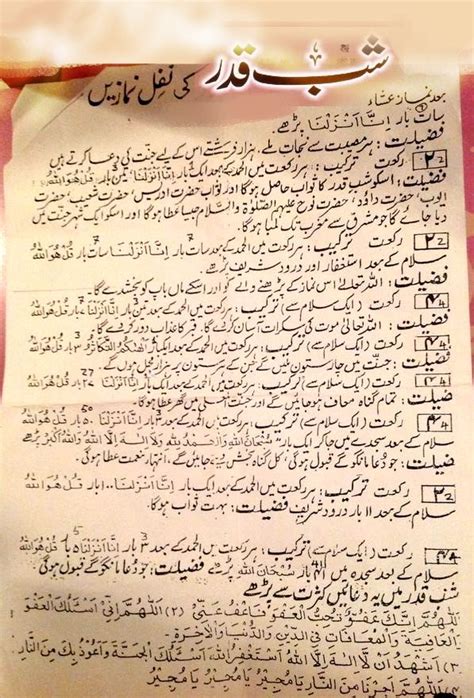 شبِ قدر کی نفل نمازیں
بعد نماز عشاء
سات بار اِنَّا اَنْزَلْنَا پڑھے
فضیلت: ہر مصیبت سے نجات ملے، ہزار فرشتے اس کے لیے جنت کی دعا کرتے ہیں
2 رکعت ترکیب: ہر رکعت میں الحمد کے بعد ایک بار اِنَّا اَنْزَلْنَا تین بار قُلْ هُوَ اللهُ
فضیلت: اسکو شب قدر کا ثواب حاصل ہوگا اور ثواب حضرت ادریس، حضرت شعیب، حضرت
ایوب، حضرت داؤد، حضرت نوح علیہم الصلوٰۃ والسلام جیسا عطا ہوگا اور اسکو ایک شہر جنت میں
دیا جائے گا جو مشرق سے مغرب تک لمبا ہوگا
2 رکعت ترکیب: ہر رکعت میں الحمد کے بعد سات بار اِنَّا اَنْزَلْنَا سات بار قُلْ هُوَ اللهُ
سلام کے بعد استغفار اور درود شریف پڑھے
فضیلت: اللہ تعالےٰ اس نماز کے پڑھنے والے کو اور اسکے ماں باپ کو بخشدے گا
4 رکعت (ایک سلام سے) ترکیب: ہر رکعت میں الحمد کے بعد تین بار اِنَّا اَنْزَلْنَا بار قُلْ هُوَ اللهُ
فضیلت: اللہ تعالیٰ موت کی سکرات آسان کرے گا، قبر کا عذاب دور کرے گا
4 رکعت (ایک سلام سے) ترکیب: ہر رکعت میں الحمد کے بعد ایک بار اَلْهٰكُمُ التَّكَاثُرُ 3 بار قُلْ هُوَ اللهُ
فضیلت: جنت میں چار ستون ملیں گے جن کے ہر ستون پر ہزار محل ہوں گے
4 رکعت (ایک سلام سے) ترکیب: ہر رکعت میں الحمد کے بعد ایک بار اِنَّا اَنْزَلْنَا 27 بار قُلْ هُوَ اللهُ
فضیلت: تمام گناہ معاف ہو جائیں گے اور جنت میں گھر عطا ہوگا
4 رکعت (ایک سلام سے) ترکیب: ہر رکعت میں الحمد کے بعد 3 بار اِنَّا اَنْزَلْنَا 50 بار قُلْ هُوَ اللهُ
سلام کے بعد سجدے میں جا کر ایک بار سُبْحَانَ اللهِ وَالْحَمْدُ لِلّٰهِ وَلَا اِلٰهَ اِلَّا اللهُ وَاللهُ اَكْبَرُ پڑھے
فضیلت: جو دعا مانگو گے قبول ہوگی، کل گناہ بخش دیئے جائیں گے، انتہار نعمت عطا ہوگی
2 رکعت ترکیب: ہر رکعت میں الحمد کے بعد ایک بار اِنَّا اَنْزَلْنَا بار قُلْ هُوَ اللهُ
سلام کے بعد ۱۱ بار درود شریف فضیلت: بہت ثواب ہوگا
رکعت (ایک سلام سے) ترکیب: ہر رکعت میں الحمد کے بعد 3 بار اِنَّا اَنْزَلْنَا 5 بار قُلْ هُوَ اللهُ
سلام کے بعد سجدہ میں 41 بار سُبْحَانَ اللهِ پڑھے فضیلت: جو دعا مانگو گے قبول ہوگی
شب قدر میں یہ دعائیں کثرت سے پڑھے
اَللّٰهُمَّ اِنَّكَ عَفُوٌّ تُحِبُّ الْعَفْوَ فَاعْفُ عَنِّيْ (۲) اَللّٰهُمَّ اِنِّيْ اَسْئَلُكَ الْعَفْوَ
وَالْعَافِيَةَ وَالْمُعَافَاتَ فِي الدِّيْنِ وَالدُّنْيَا وَالْاٰخِرَةِ
(۳) اَشْهَدُ اَنْ لَّا اِلٰهَ اِلَّا اللهُ اَسْتَغْفِرُ اللهَ اَسْئَلُكَ الْجَنَّةَ وَاَعُوْذُ بِكَ مِنَ النَّارِ
اَللّٰهُمَّ اَجِرْنَا مِنَ النَّارِ يَا مُجِيْرُ يَا مُجِيْرُ يَا مُجِيْرُ